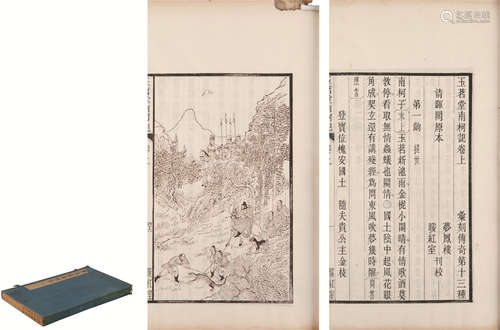 玉茗堂南柯記卷上 彙刻傳奇第十三種
清暉閣原本 夢鳳樓
暖紅室 刊校
第一齣 提世
南柯子 末上 玉茗新池雨金柅小閣晴有情歌酒莫
教停看取無情蟲蟻也關情 國土陰中起風花眼
角成契玄還有講殘經為問東風吹夢幾時醒
登寶位槐安國土 隨夫貴公主金枝